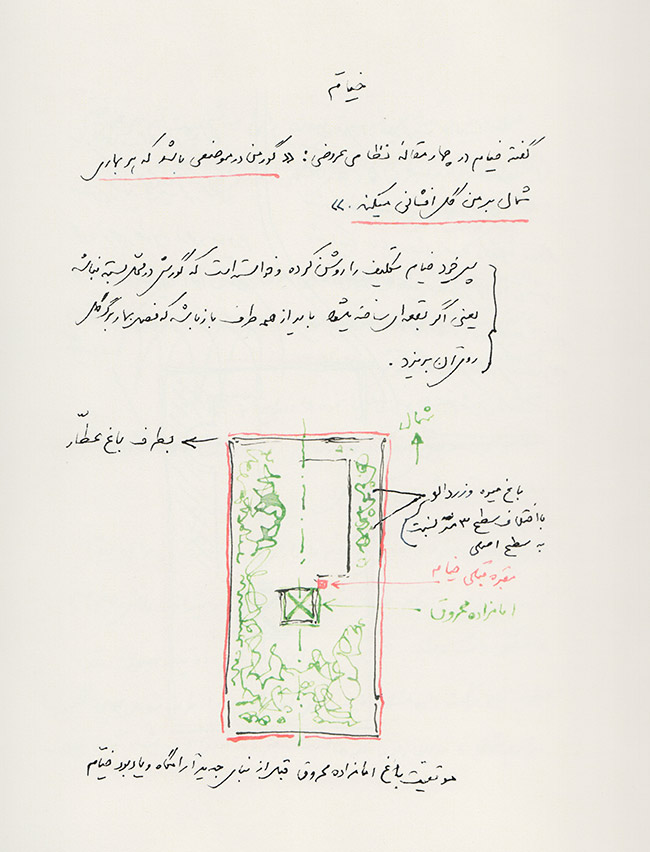 خیام
گفتهٔ خیام در چهار مقالهٔ نظامی عروضی: «گور من در موضعی باشد که هر بهاری
شمال بر من گل افشانی میکند.»
پس خود خیام تکلیف را روشن کرده و خواسته است که گورش در محل بسته نباشد
یعنی اگر بقعه‌ای ساخته بشود باید از همه طرف باز باشد که فصل بهار برگ گل
روی آن بریزد.
شمال
بطرف باغ عطّار
باغ میوه و زردآلو
با اختلاف سطح ۳ متر نسبت
به سطح اصلی
مقبره قبلی خیام
امامزاده محروق
موقعیت باغ امامزاده محروق قبل از بنای جدید آرامگاه و یادبود خیّام